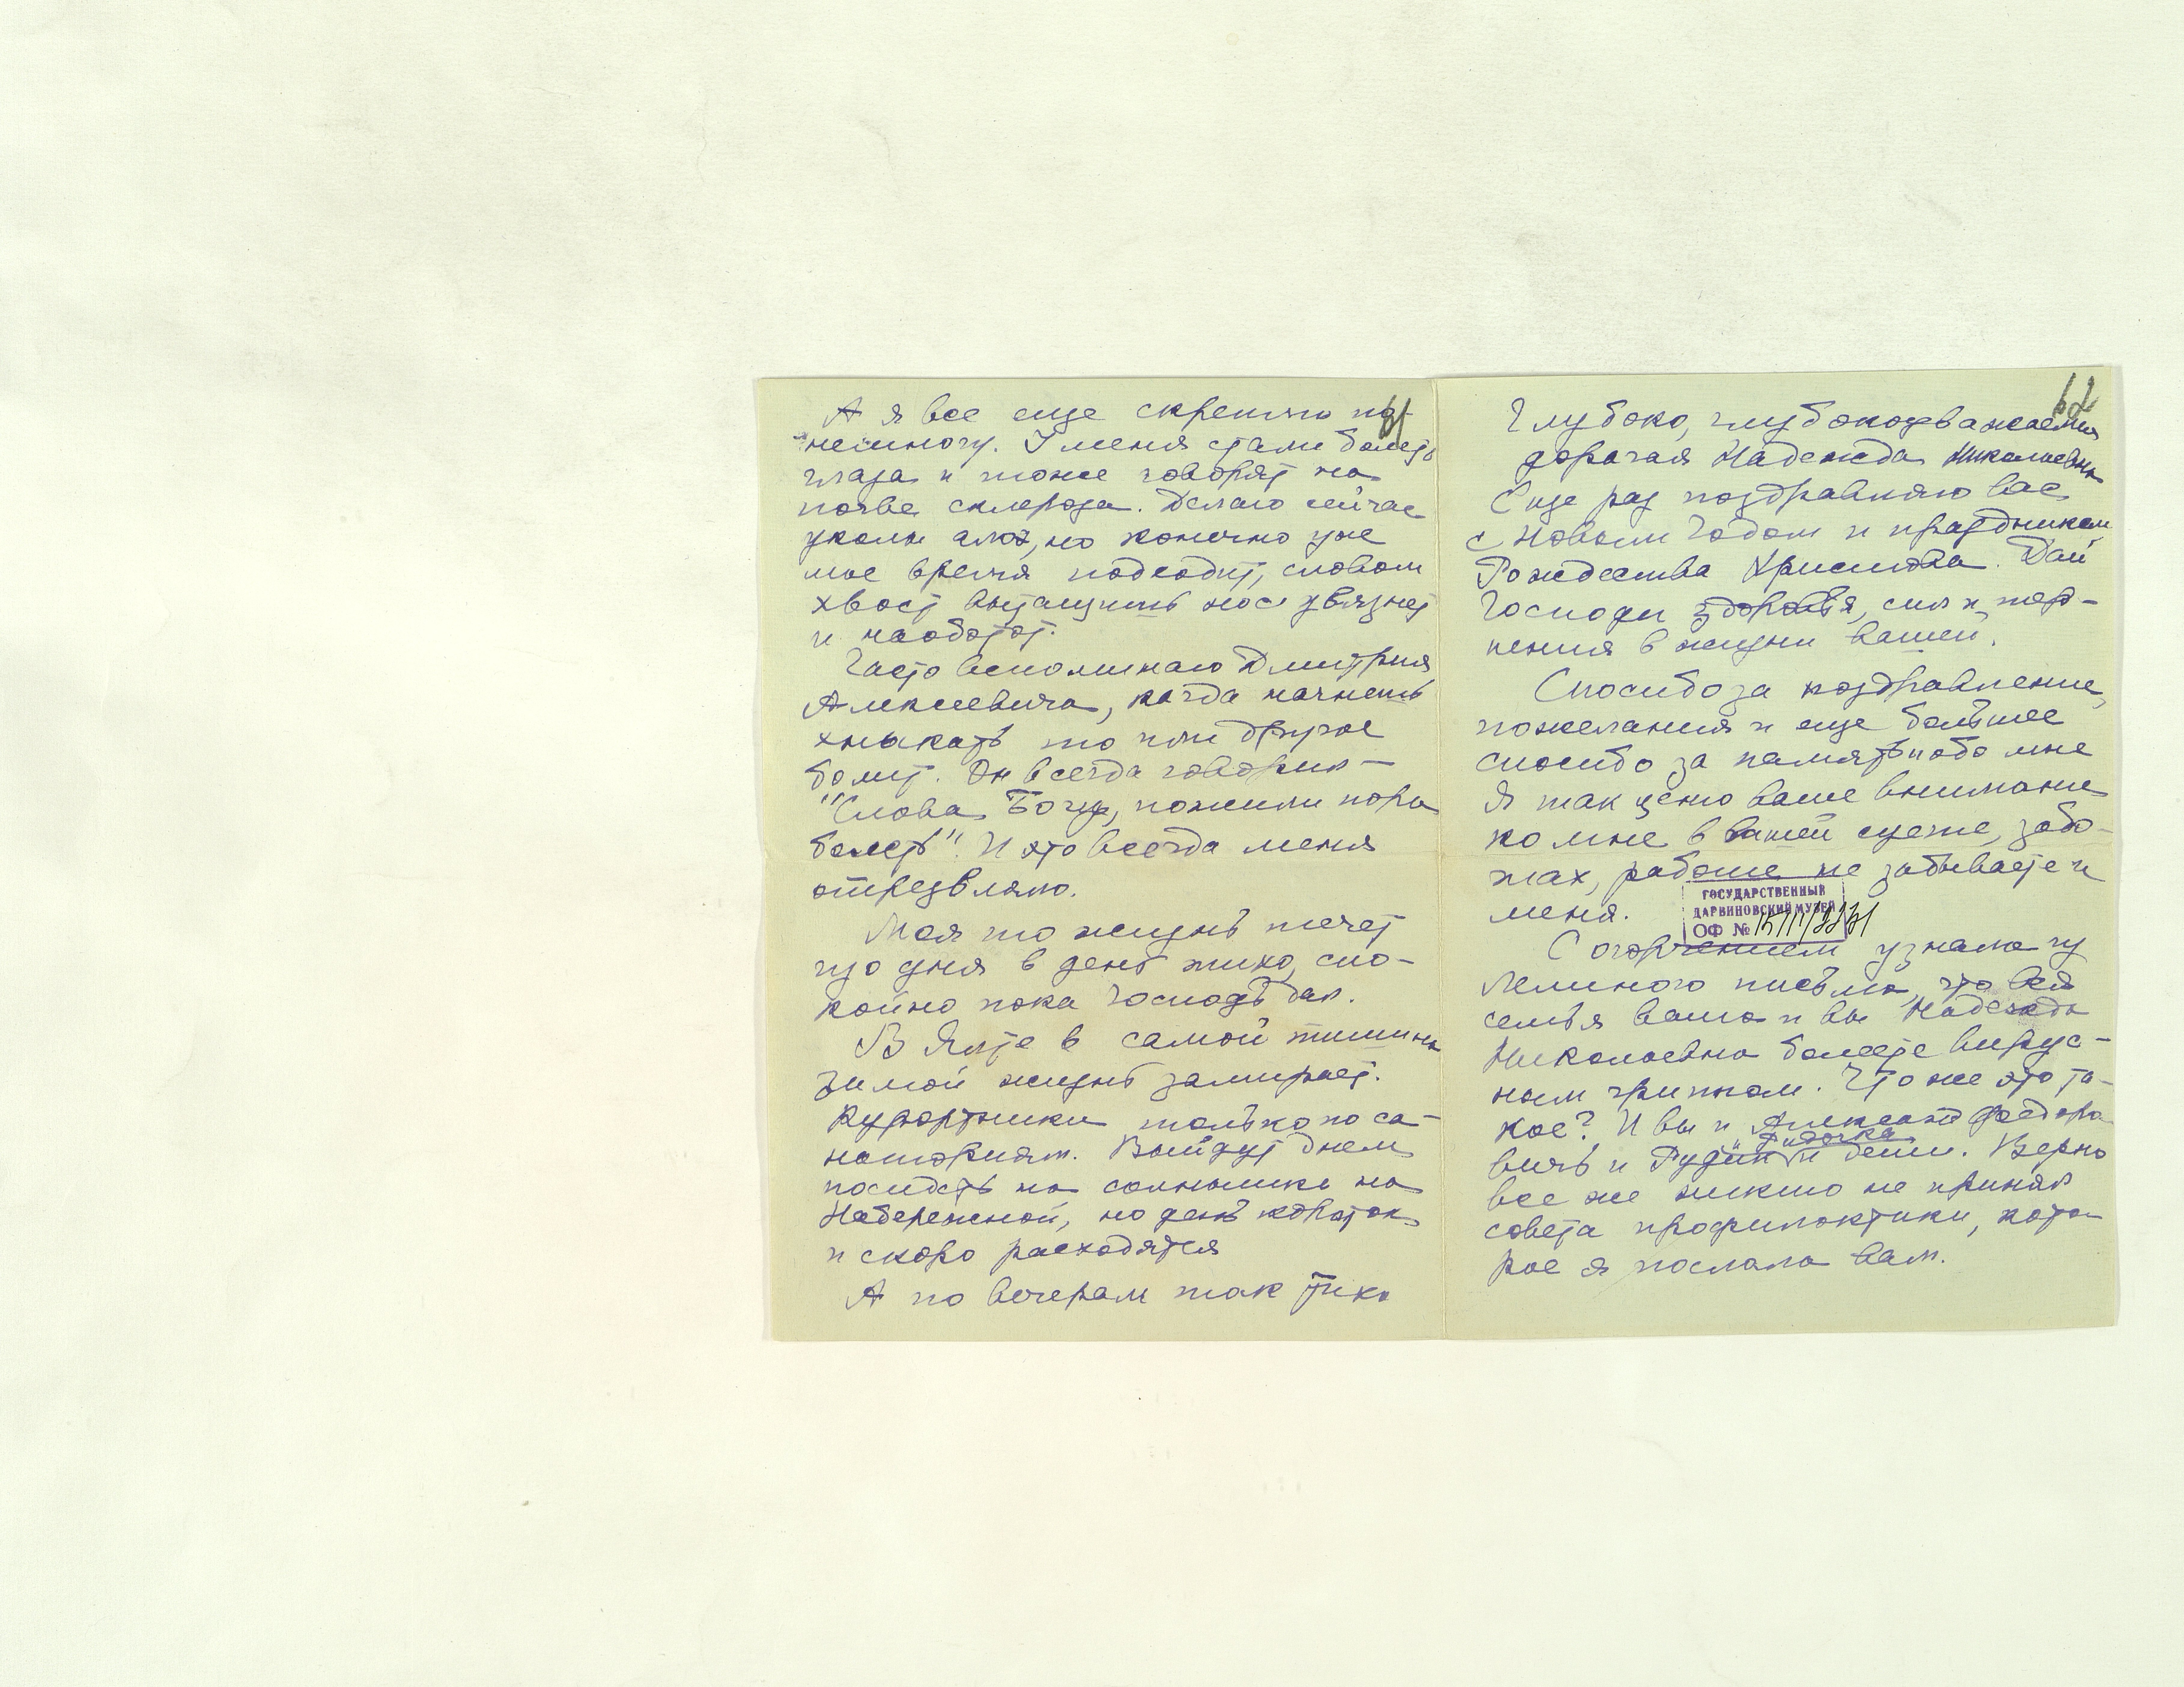 А я все еще скреплю по-
61
немногу. У меня стали болеть
глаза и тоже говорят на
почве склероза. Делаю сейчас
уколы алоэ, но конечно уже
мое время подходит, словом
хвост вытащишь нос увязнет
и наоборот.
Часто вспоминаю Дмитрия
Алексеевича, когда начнешь
хныкать то или другое
болит. Он всегда говорил —
"Слова Богу, пожили пора
болеть". И это всегда меня
отрезвляло.
Моя то жизнь течет
изо дня в день тихо, спо-
койно пока Господь дал.
В Ялте в самой тишины
Зимой жизнь замирает.
Курортники только по са-
наториям. Выйдут днем
посидеть на солнышке на
Набережной, но день короток
и скоро расходятся
А по вечерам так тихо
62
Глубоко, глубокоуважаемая
дорогая Надежда Николаевна
Еще раз поздравляю вас
с Новым Годом и праздником
Рождества Христова. Дай
Господи здоровья, сил и тер-
пения в жизни вашей.
Спосибо за поздравление,
пожелания и еще большее
спосибо за память обо мне
Я так ценю ваше внимание
ко мне в вашей суете, забо-
тах, работе не забываете и
меня.
ГОСУДАРСТВЕННЫЙ
ДАРВИНОВСКИЙ МУЗЕЙ
ОФ №
С огорчением узнала из
Лелиного письма, что вся
семья ваша и вы Надежда
Николаевна болеете вирус-
ным гриппом. Что же это та-
кое? И вы и Александр Федоро-
вичь и Рудик и дети. Верно
все же никто не принял
совета профилактики, кото-
рое я послала вам.